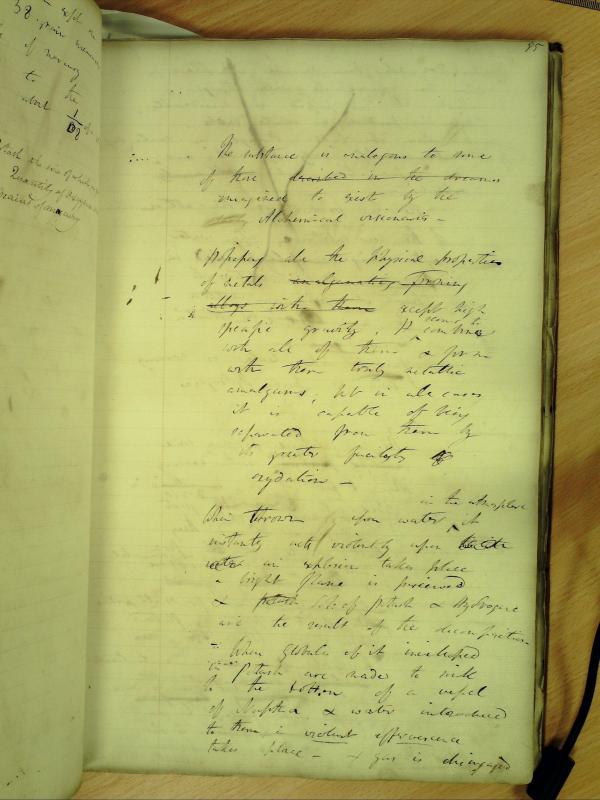 85
The substance is analogous to some
of those described in the dreams
imagined to exist by the
Alchemical visionaries –
possessing all the physical properties
of metals amalgamating forming
alloys with them except high
specific gravity, It seems to combine
with all of them & form
with them truly metallic
amalgams, but in all cases
it is capable of being
separated from them by
its greater facility of
oxydation –
in the atmosphere
When thrown upon water, it
instantly acts violently upon the
water an explosion takes place
a bright flame is perceived
& potash Sol of potash & Hydrogene
are the result of the decomposition
– When Globules of it
Potash are made to sink
to the bottom of a vessel
of Naptha & water introduced
to them a violent effervescence
takes place – & gas is disengaged
38 grain
of
to the
1
of mercury